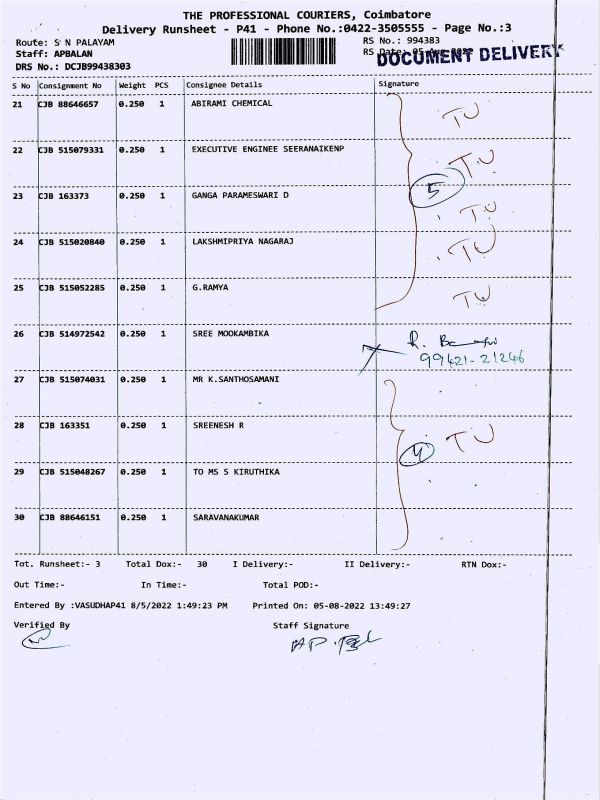 THE PROFESSIONAL COURIERS, Coimbatore
Delivery Runsheet - P41 - Phone No.:0422-3505555 - Page No.:3
Route: S N PALAYAM
RS No.: 994383
Staff: APBALAN
RS Date: 05 Aug 2022
DOCUMENT DELIVERY
DRS No.: DCJB99438303
S No Consignment No Weight PCS Consignee Details Signature
21 CJB 88646657 0.250 1 ABIRAMI CHEMICAL TU
22 CJB 515079331 0.250 1 EXECUTIVE ENGINEE SEERANAIKENP TU
5
23 CJB 163373 0.250 1 GANGA PARAMESWARI D TU
24 CJB 515020840 0.250 1 LAKSHMIPRIYA NAGARAJ TU
25 CJB 515052285 0.250 1 G.RAMYA TU
26 CJB 514972542 0.250 1 SREE MOOKAMBIKA
99421-21246
27 CJB 515074031 0.250 1 MR K.SANTHOSAMANI
28 CJB 163351 0.250 1 SREENESH R TU
4
29 CJB 515048267 0.250 1 TO MS S KIRUTHIKA
30 CJB 88646151 0.250 1 SARAVANAKUMAR
Tot. Runsheet:- 3 Total Dox:- 30 I Delivery:- II Delivery:- RTN Dox:-
Out Time:- In Time:- Total POD:-
Entered By :VASUDHAP41 8/5/2022 1:49:23 PM Printed On: 05-08-2022 13:49:27
Verified By Staff Signature